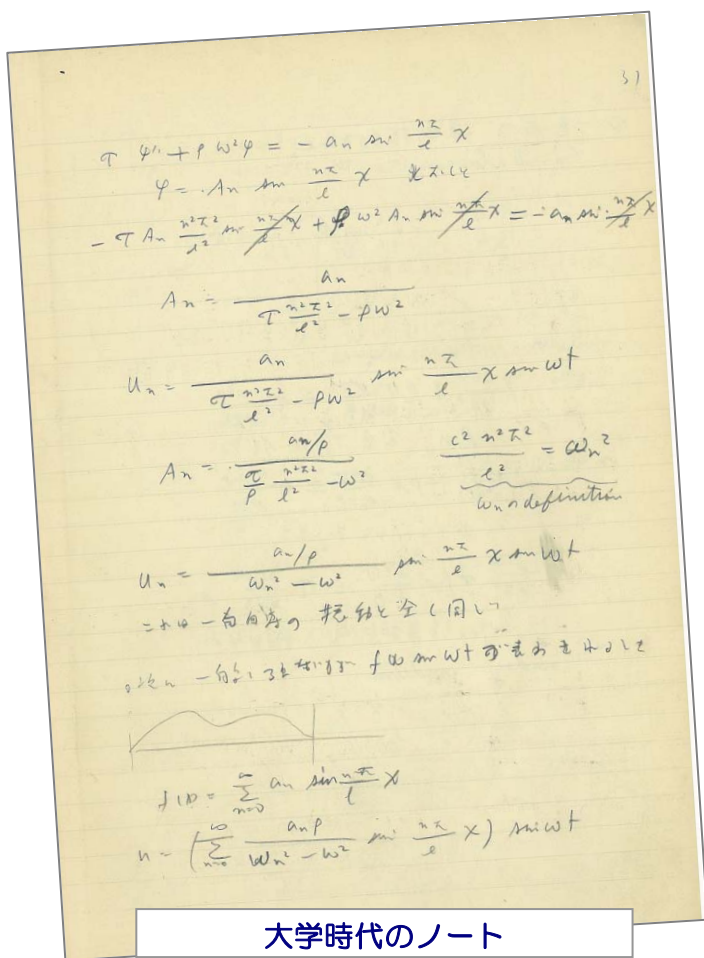 31
τ φ'' + ρ ω²φ = - an sin nπ/l x
φ = An sin nπ/l x
- τ An n²π²/l² sin nπ/l x + ρ ω² An sin nπ/l x = - an sin nπ/l x
An = an / (τ n²π²/l² - ρω²)
un = an / (τ n²π²/l² - ρω²) sin nπ/l x sin ωt
An = an/ρ / (τ/ρ n²π²/l² - ω²)   c² n²π²/l² = ωn²
ωn の definition
un = an/ρ / (ωn² - ω²) sin nπ/l x sin ωt
これは一自由度の振動と全く同じ
次に一般に f(x) sin ωt
f(x) = ∞Σn=0 an sin nπ/l x
u = (∞Σn=0 anρ / (ωn² - ω²) sin nπ/l x) sin ωt
大学時代のノート